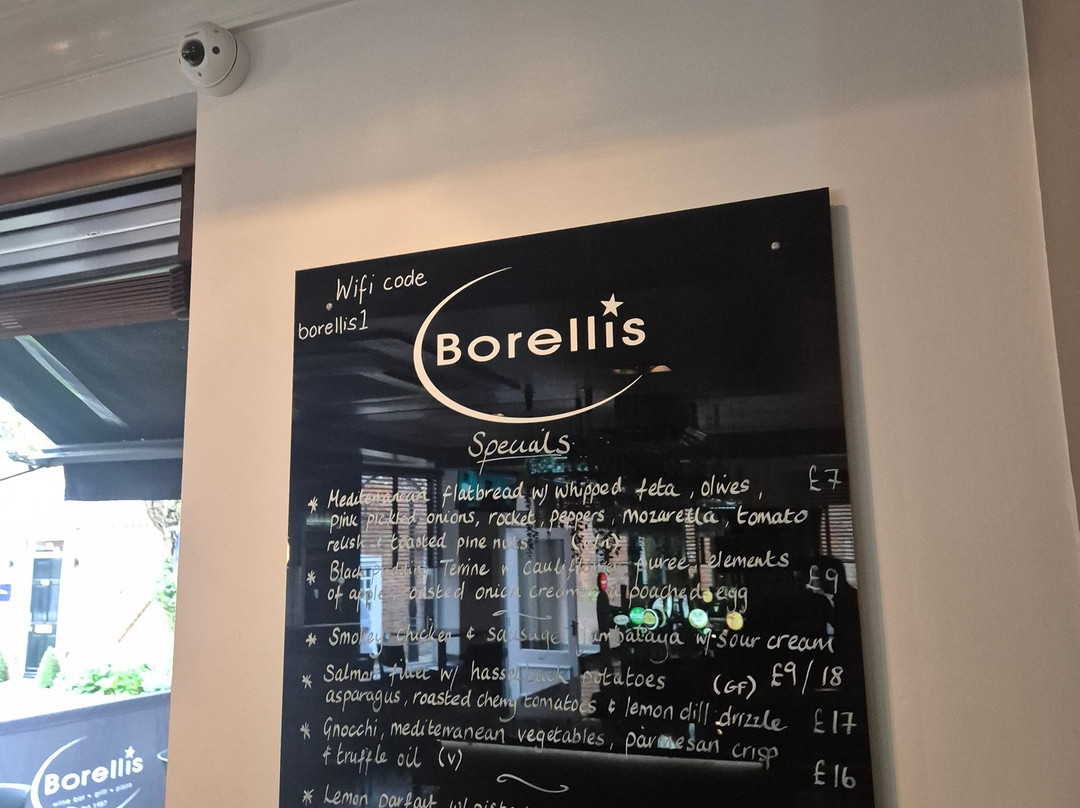 Wifi code
borellis1
Borellis
Specials
* Mediterranean flatbread w/ whipped feta, olives, £7
pink pickled onions, rocket, peppers, mozarella, tomato
relish & toasted pine nuts
* Black pudding Terrine w cauliflower puree, elements
of apple, roasted onion cream & a poached egg £9
* Smokey chicken & sausage Jambalaya w/ sour cream
£9/18
* Salmon fillet w/ hasselback potatoes (GF)
asparagus, roasted cherry tomatoes & lemon dill drizzle £17
* Gnocchi, mediterranean vegetables, parmesan crisp
& truffle oil (v) £16
* Lemon parfait w/
Borellis
wine bar • grill •